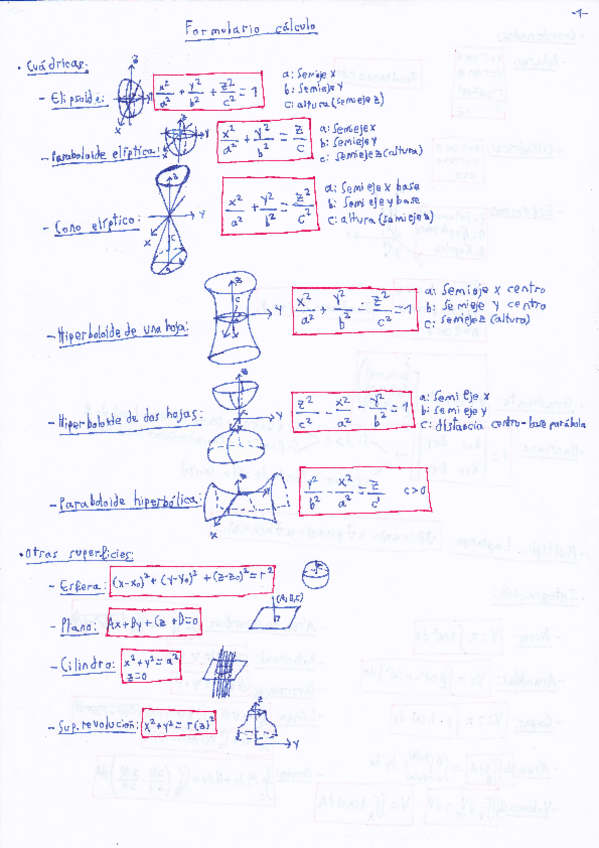 -1-
Formulario cálculo
· Cuádricas:
- Elipsoide: x²/a² + y²/b² + z²/c² = 1
a: Semieje x
b: Semieje y
c: altura (semieje z)
- Paraboloide elíptica: x²/a² + y²/b² = z/c
a: semieje x
b: semieje y
c: semieje z (altura)
- Cono elíptico: x²/a² + y²/b² = z²/c²
a: Semi eje x base
b: Semi eje y base
c: altura (semieje z)
- Hiperboloide de una hoja: x²/a² + y²/b² - z²/c² = 1
a: Semieje x centro
b: Semieje y centro
c: Semieje z (altura)
- Hiperboloide de dos hojas: z²/c² - x²/a² - y²/b² = 1
a: Semi eje x
b: Semi eje y
c: distancia centro-base parábola
- Paraboloide hiperbólica: y²/b² - x²/a² = z/c c>0
· Otras superficies:
- Esfera: (x-x₀)² + (y-y₀)² + (z-z₀)² = r²
- Plano: Ax+By+Cz+D=0
(A,B,C)
- Cilindro: x²+y²=a²
z=0
- Sup. revolución: x²+y²=r(z)²